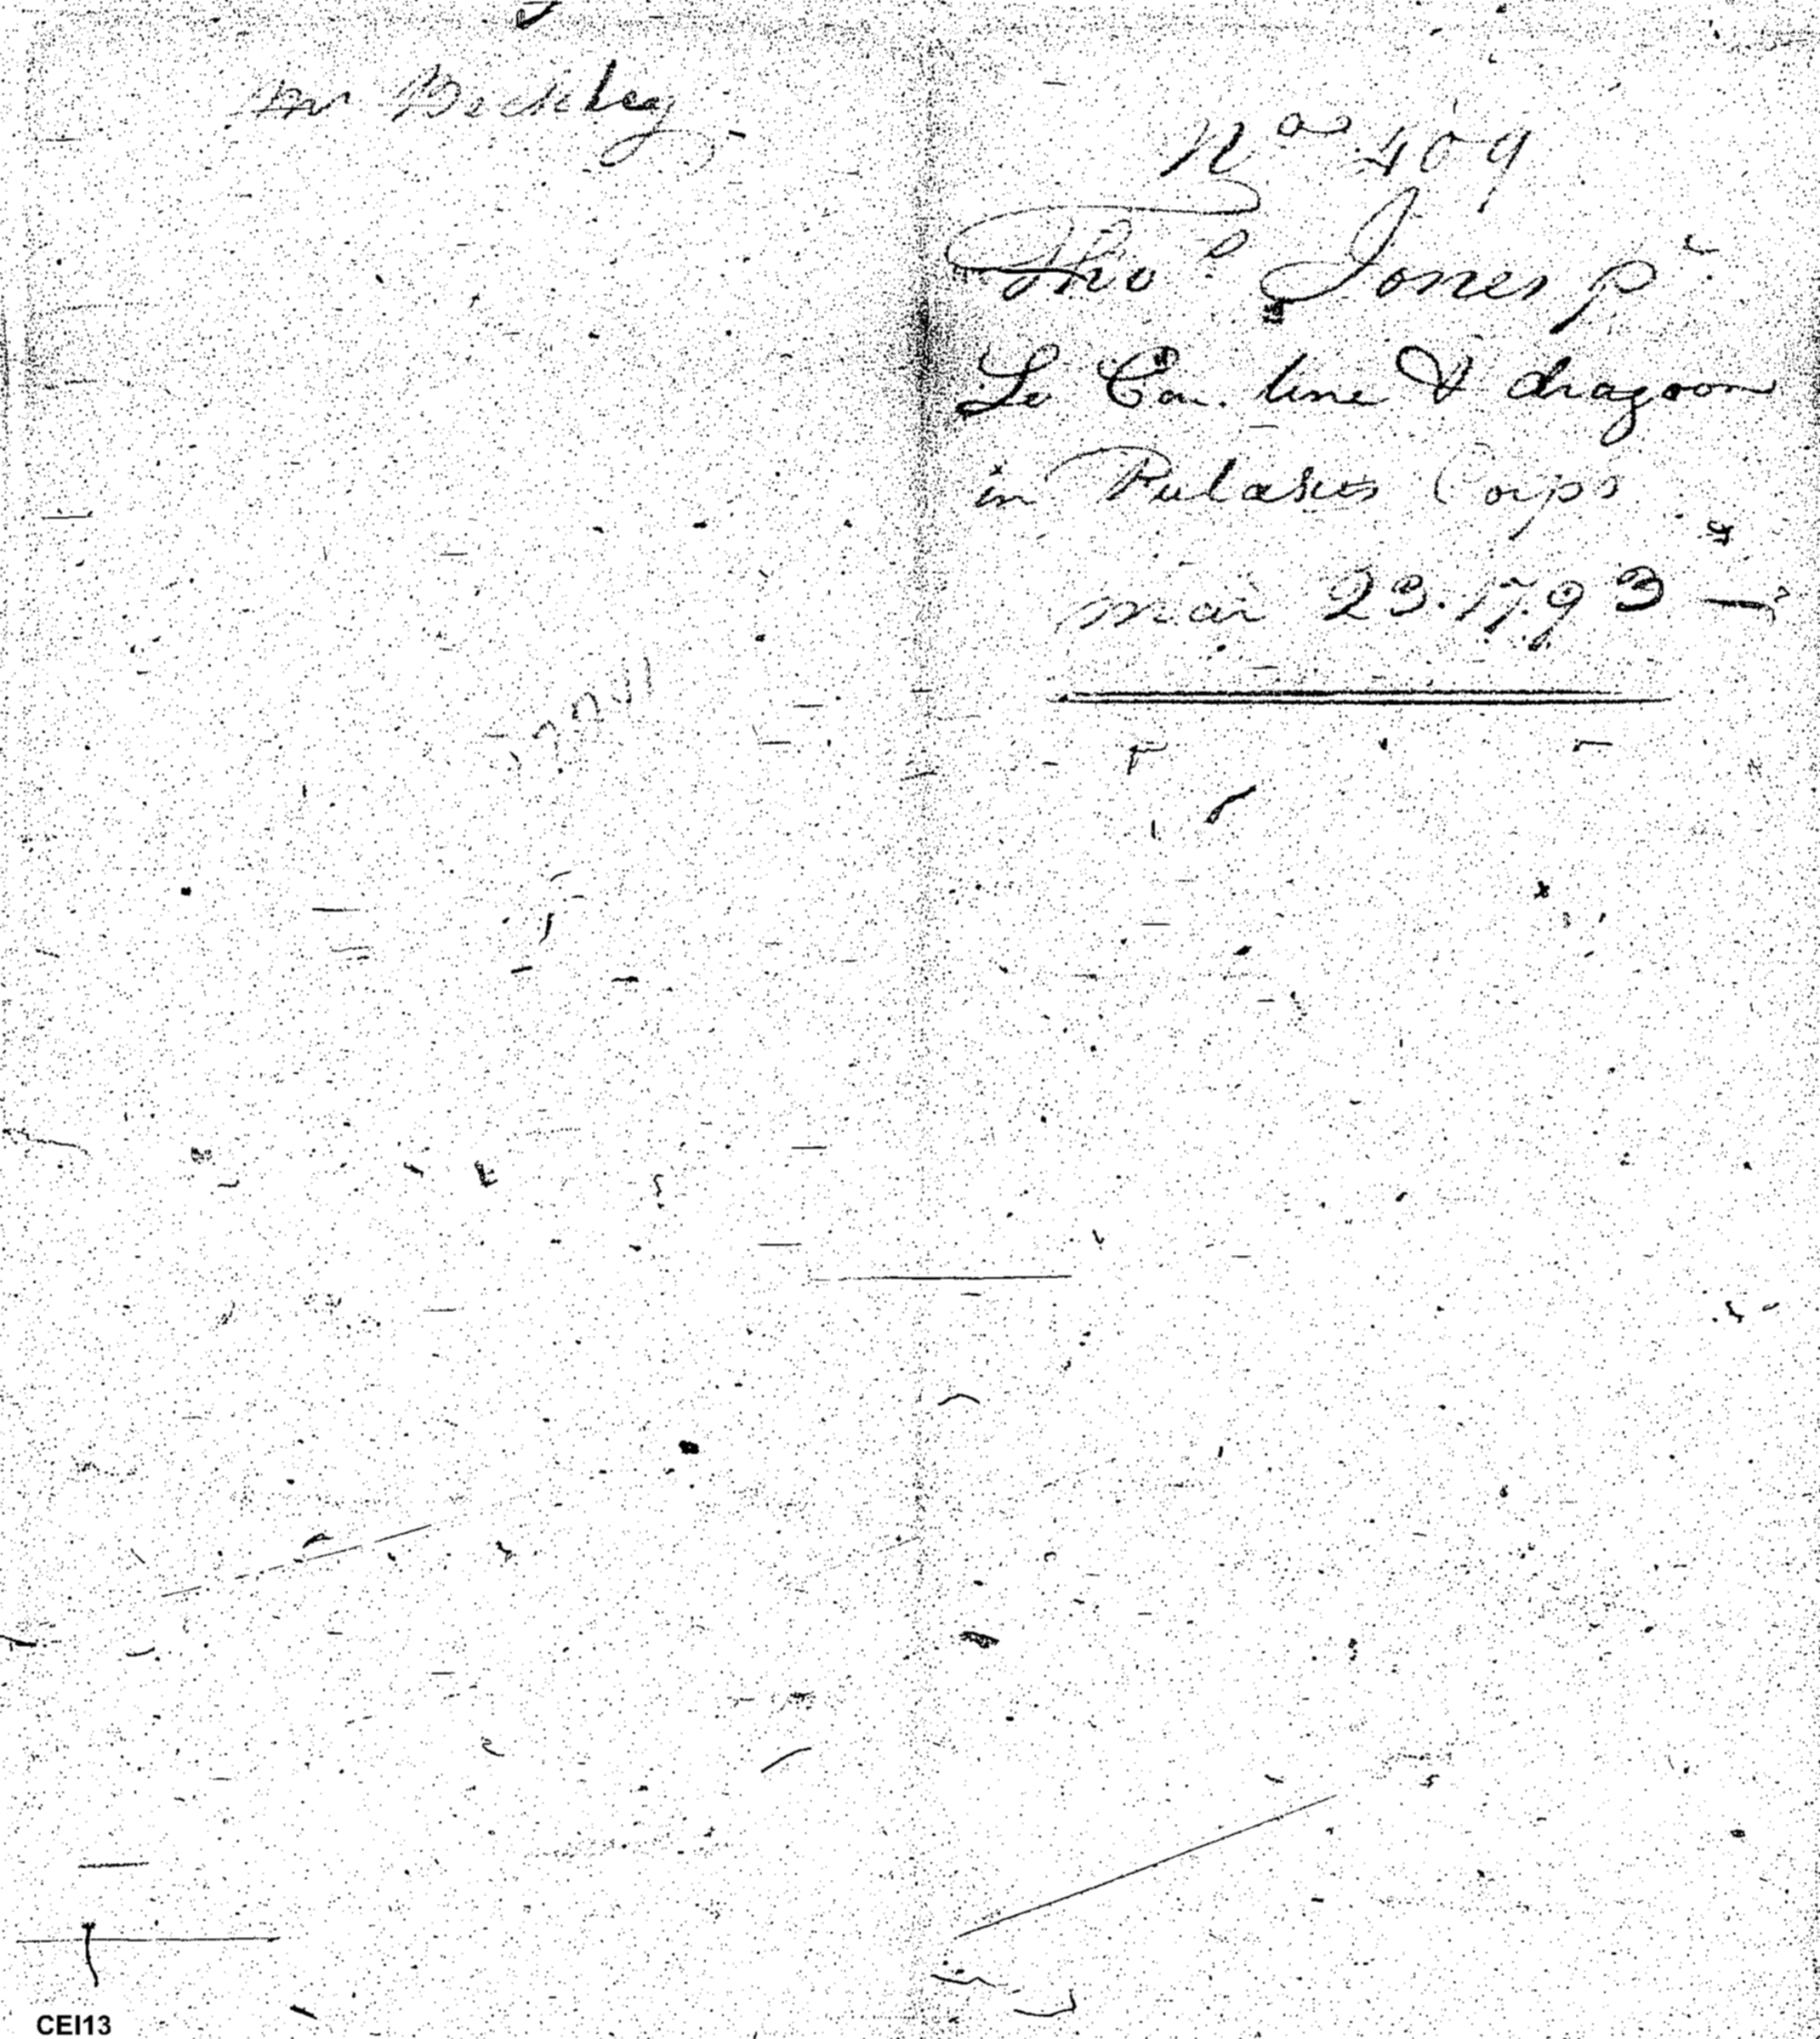 Mr Beckley
No 409
Thos Jones pr
So Car. line & dragoon
in Pulaskis Corps
Mar 23. 1793 —
CEI13